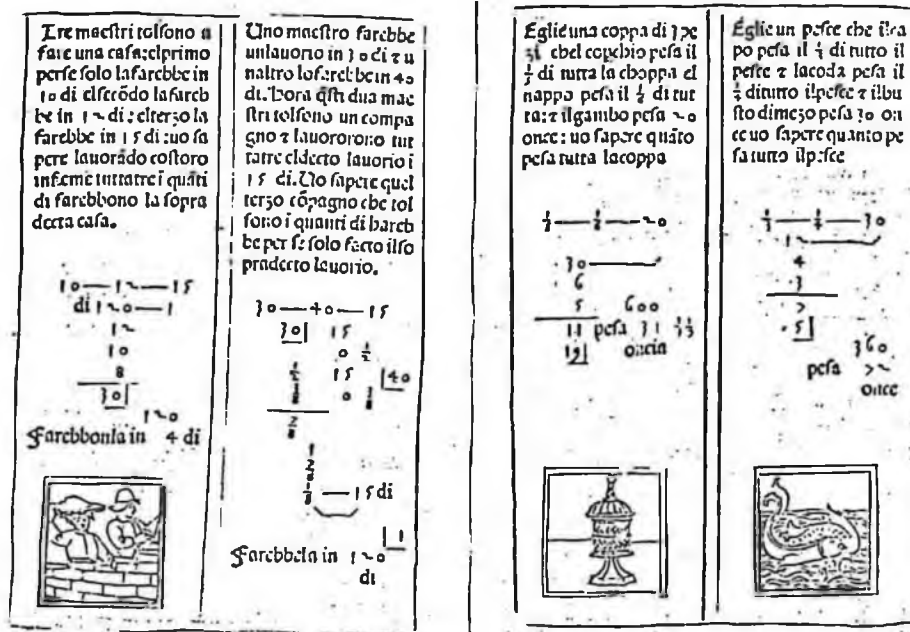 Tre maestri tolsono a
fare una casa:elprimo
perse solo lafarebbe in
10 di elsecōdo lafareb
be in 12 di : elterzo la
farebbe in 15 di :uo sa
pere lauorādo costoro
insieme tuttatre i quāti
di farebbono la sopra
decta casa.
10—12—15
di 120—1
12
10
8
30
120
Farebbonla in 4 di
Uno maestro farebbe
unlauorio in 30 di ⁊ u
naltro lofarebbe in 40
di. hora q̄sti dua mae
stri tolsono un compa
gno ⁊ lauororono tut
tatre eldecto lauorio i
15 di. Uo sapere quel
terzo cōpagno che tol
sono i quanti di hareb
be per se solo facto ilso
pradecto lauorio.
30—40—15
30 15
0 1/2
15 40
0 3/8
—15 di
1
Farebbela in 120
di
Egliè una coppa di 3 pe
zi chel copchio pesa il
1/3 di tutta la choppa el
nappo pesa il 1/6 di tut
ta:⁊ ilgambo pesa 20
once : uo sapere quāto
pesa tutta lacoppa
20
30
6
5 600
11 pesa 31 11/19
19 oncia
Eglie un pesce che ilca
po pesa il 1/3 di tutto il
pesce ⁊ lacoda pesa il
1/4 ditutto ilpesce ⁊ ilbu
sto dimezo pesa 30 on
ce uo sapere quanto pe
sa tutto ilpesce
1/3—1/4—30
12
4
3
7
5
360
pesa 72
once